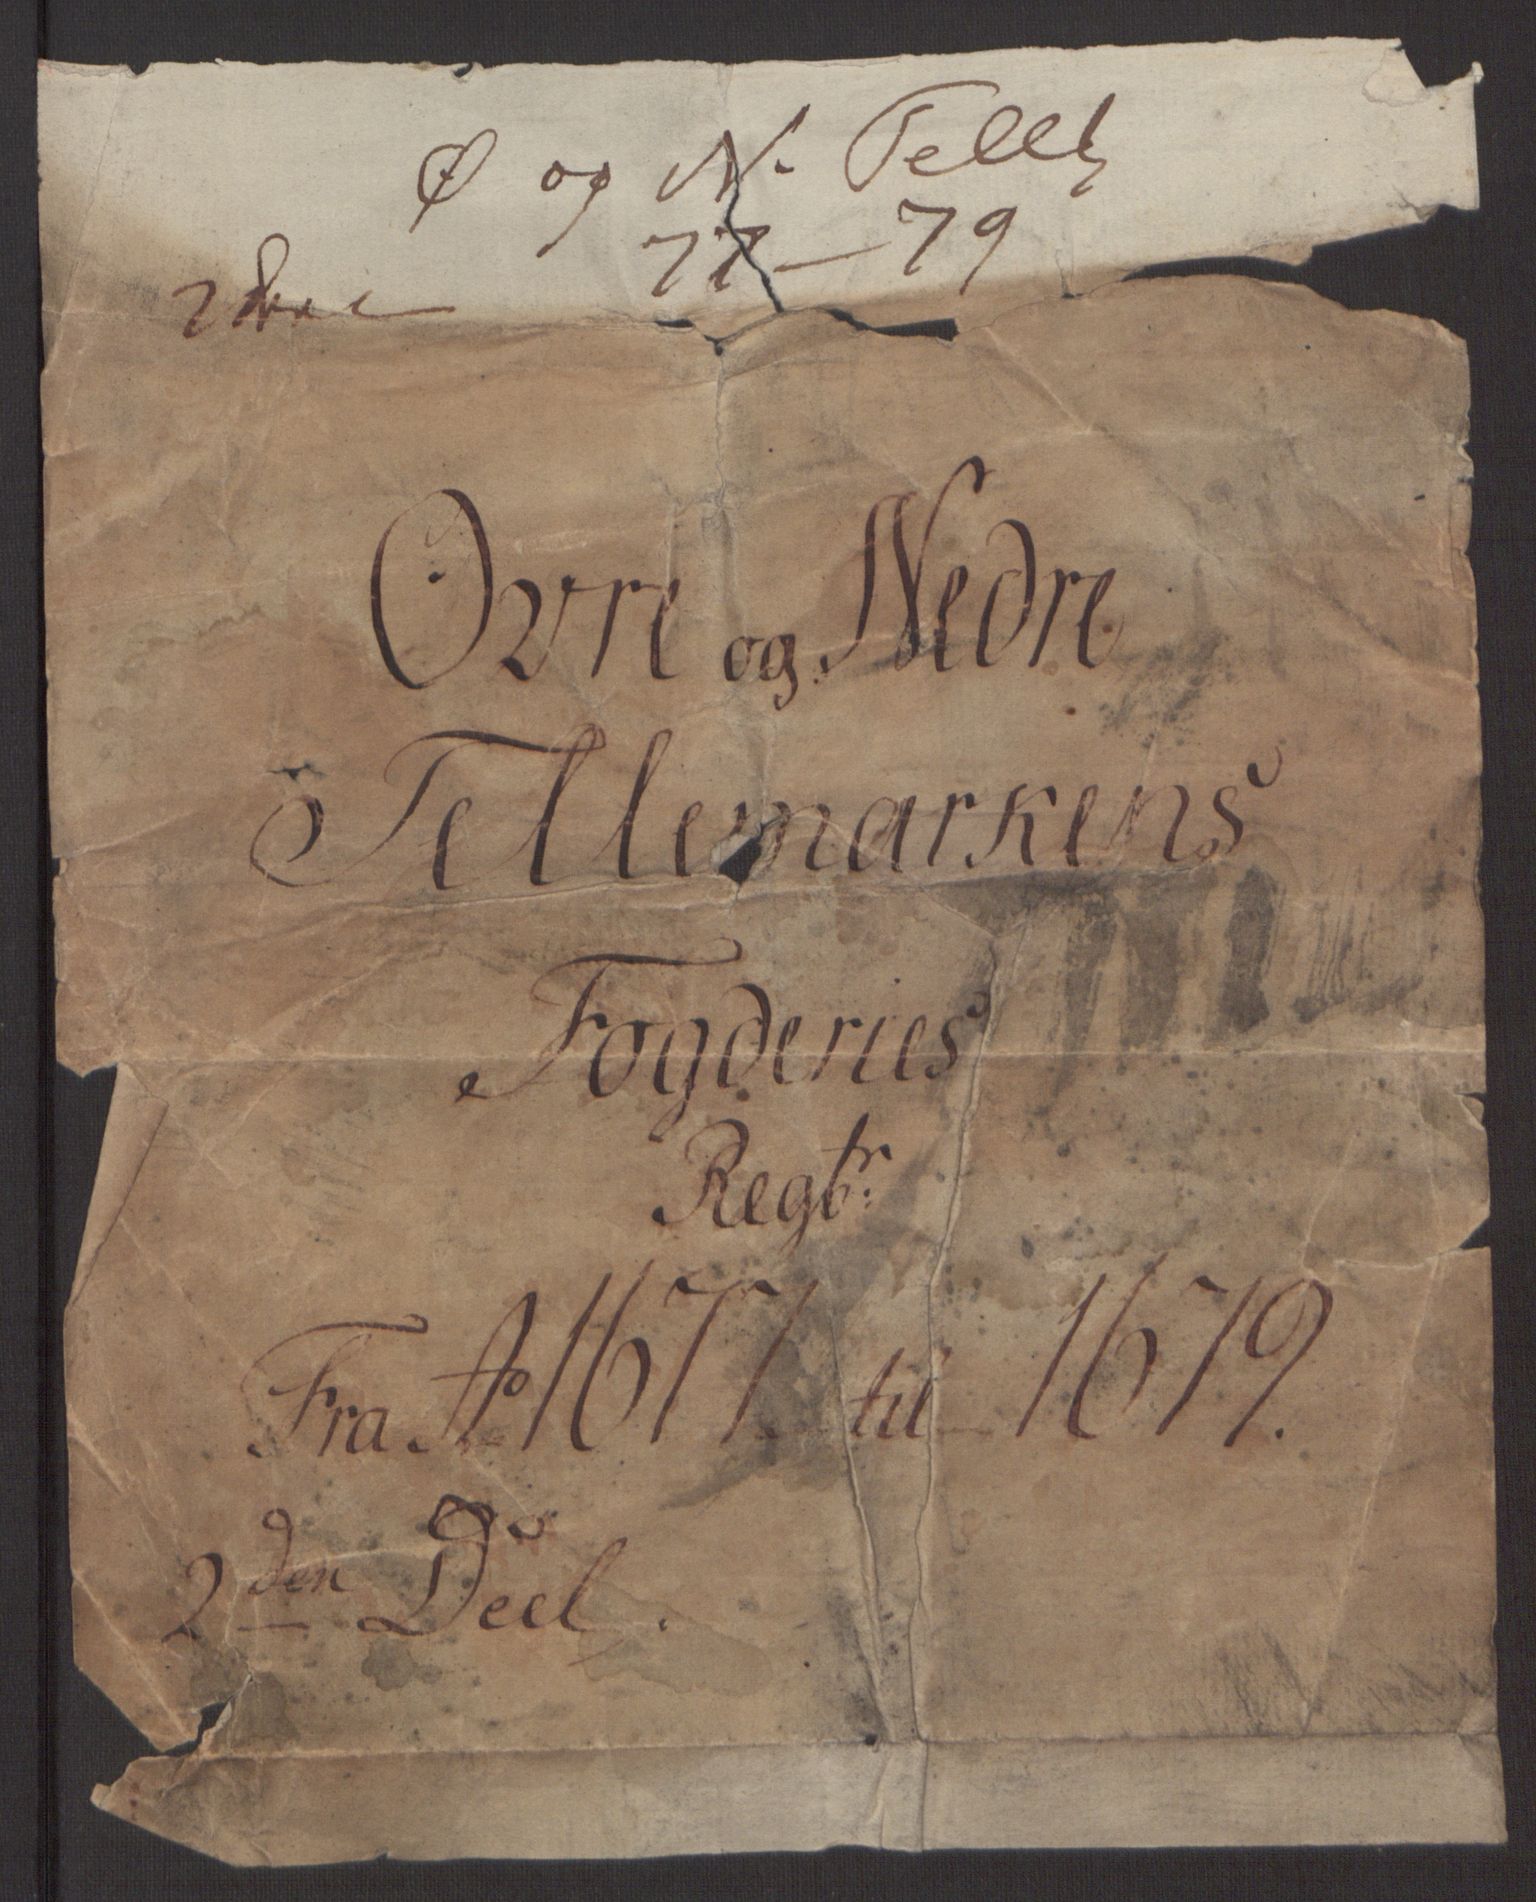 Ø og N. Tellb
77 — 79
2
Øvre og Nedre
Tellemarkens
Fogderies
Regbr:
Fra Ao 1677. til 1679.
2den Deel.